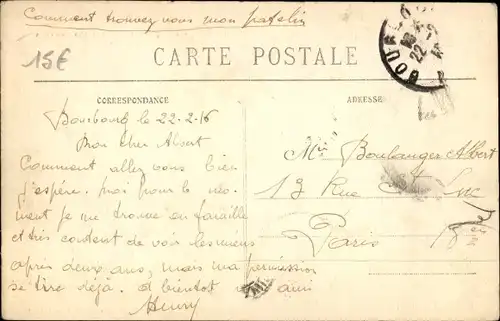 Comment trouvez vous mon patelin
15€
CARTE POSTALE
CORRESPONDANCE
ADRESSE
BOURBO
22
le 22-2-16
Mon cher Albert
Comment allez vous bien
j'espère. moi pour le mo-
ment je me trouve en famille
et très content de voir les miens
après deux ans, mais ma permission
se tire déjà. et bientot ami
Henry
Mr Boulanger Albert
13 Rue St Luc
Paris